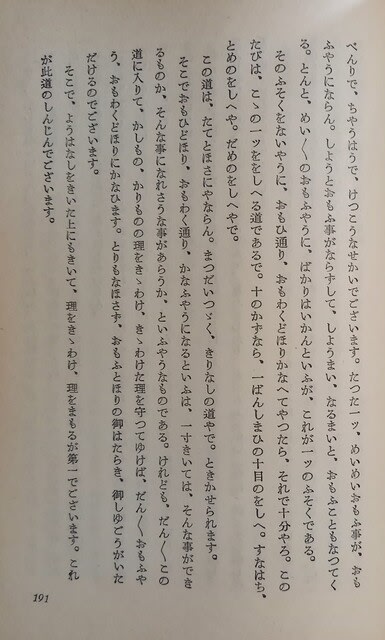 べんりで、ちやうはうで、けつこうなせかいでございます。たつた一ッ、めいめいおもふ事が、おも
ふやうにならん。しようとおもふ事がならずして、しようまい、なるまいと、おもふこともなつてく
る。とんと、めい／＼のおもふやうに、ばかりはいかんといふが、これが一ッのふそくである。
そのふそくをないやうに、おもひ通り、おもわくどほりかなへてやつたら、それで十分やろ。この
たびは、こゝの一ッををしへる道であるで。十のかずなら、一ばんしまひの十目のをしへ。すなはち、
とめのをしへや。だめのをしへやで。
この道は、たてとほさにやならん。まつだいつゞく、きりなしの道やで。ときかせられます。
そこでおもひどほり、おもわく通り、かなふやうになるといふは、一すきいては、そんな事ができ
るものか、そんな事になれさうな事があらうか、といふやうなものである。けれども、だん／＼この
道に入りて、かしもの、かりものの理をきゝわけ、きゝわけた理を守つてゆけば、だん／＼おもふや
う、おもわくどほりにかなひます。とりもなほさず、おもふとほりの御はたらき、御しゆごうがいた
だけるのでございます。
そこで、ようはなしをきいた上にもきいて、理をきゝわけ、理をまもるが第一でございます。これ
が此道のしんじんでございます。
191